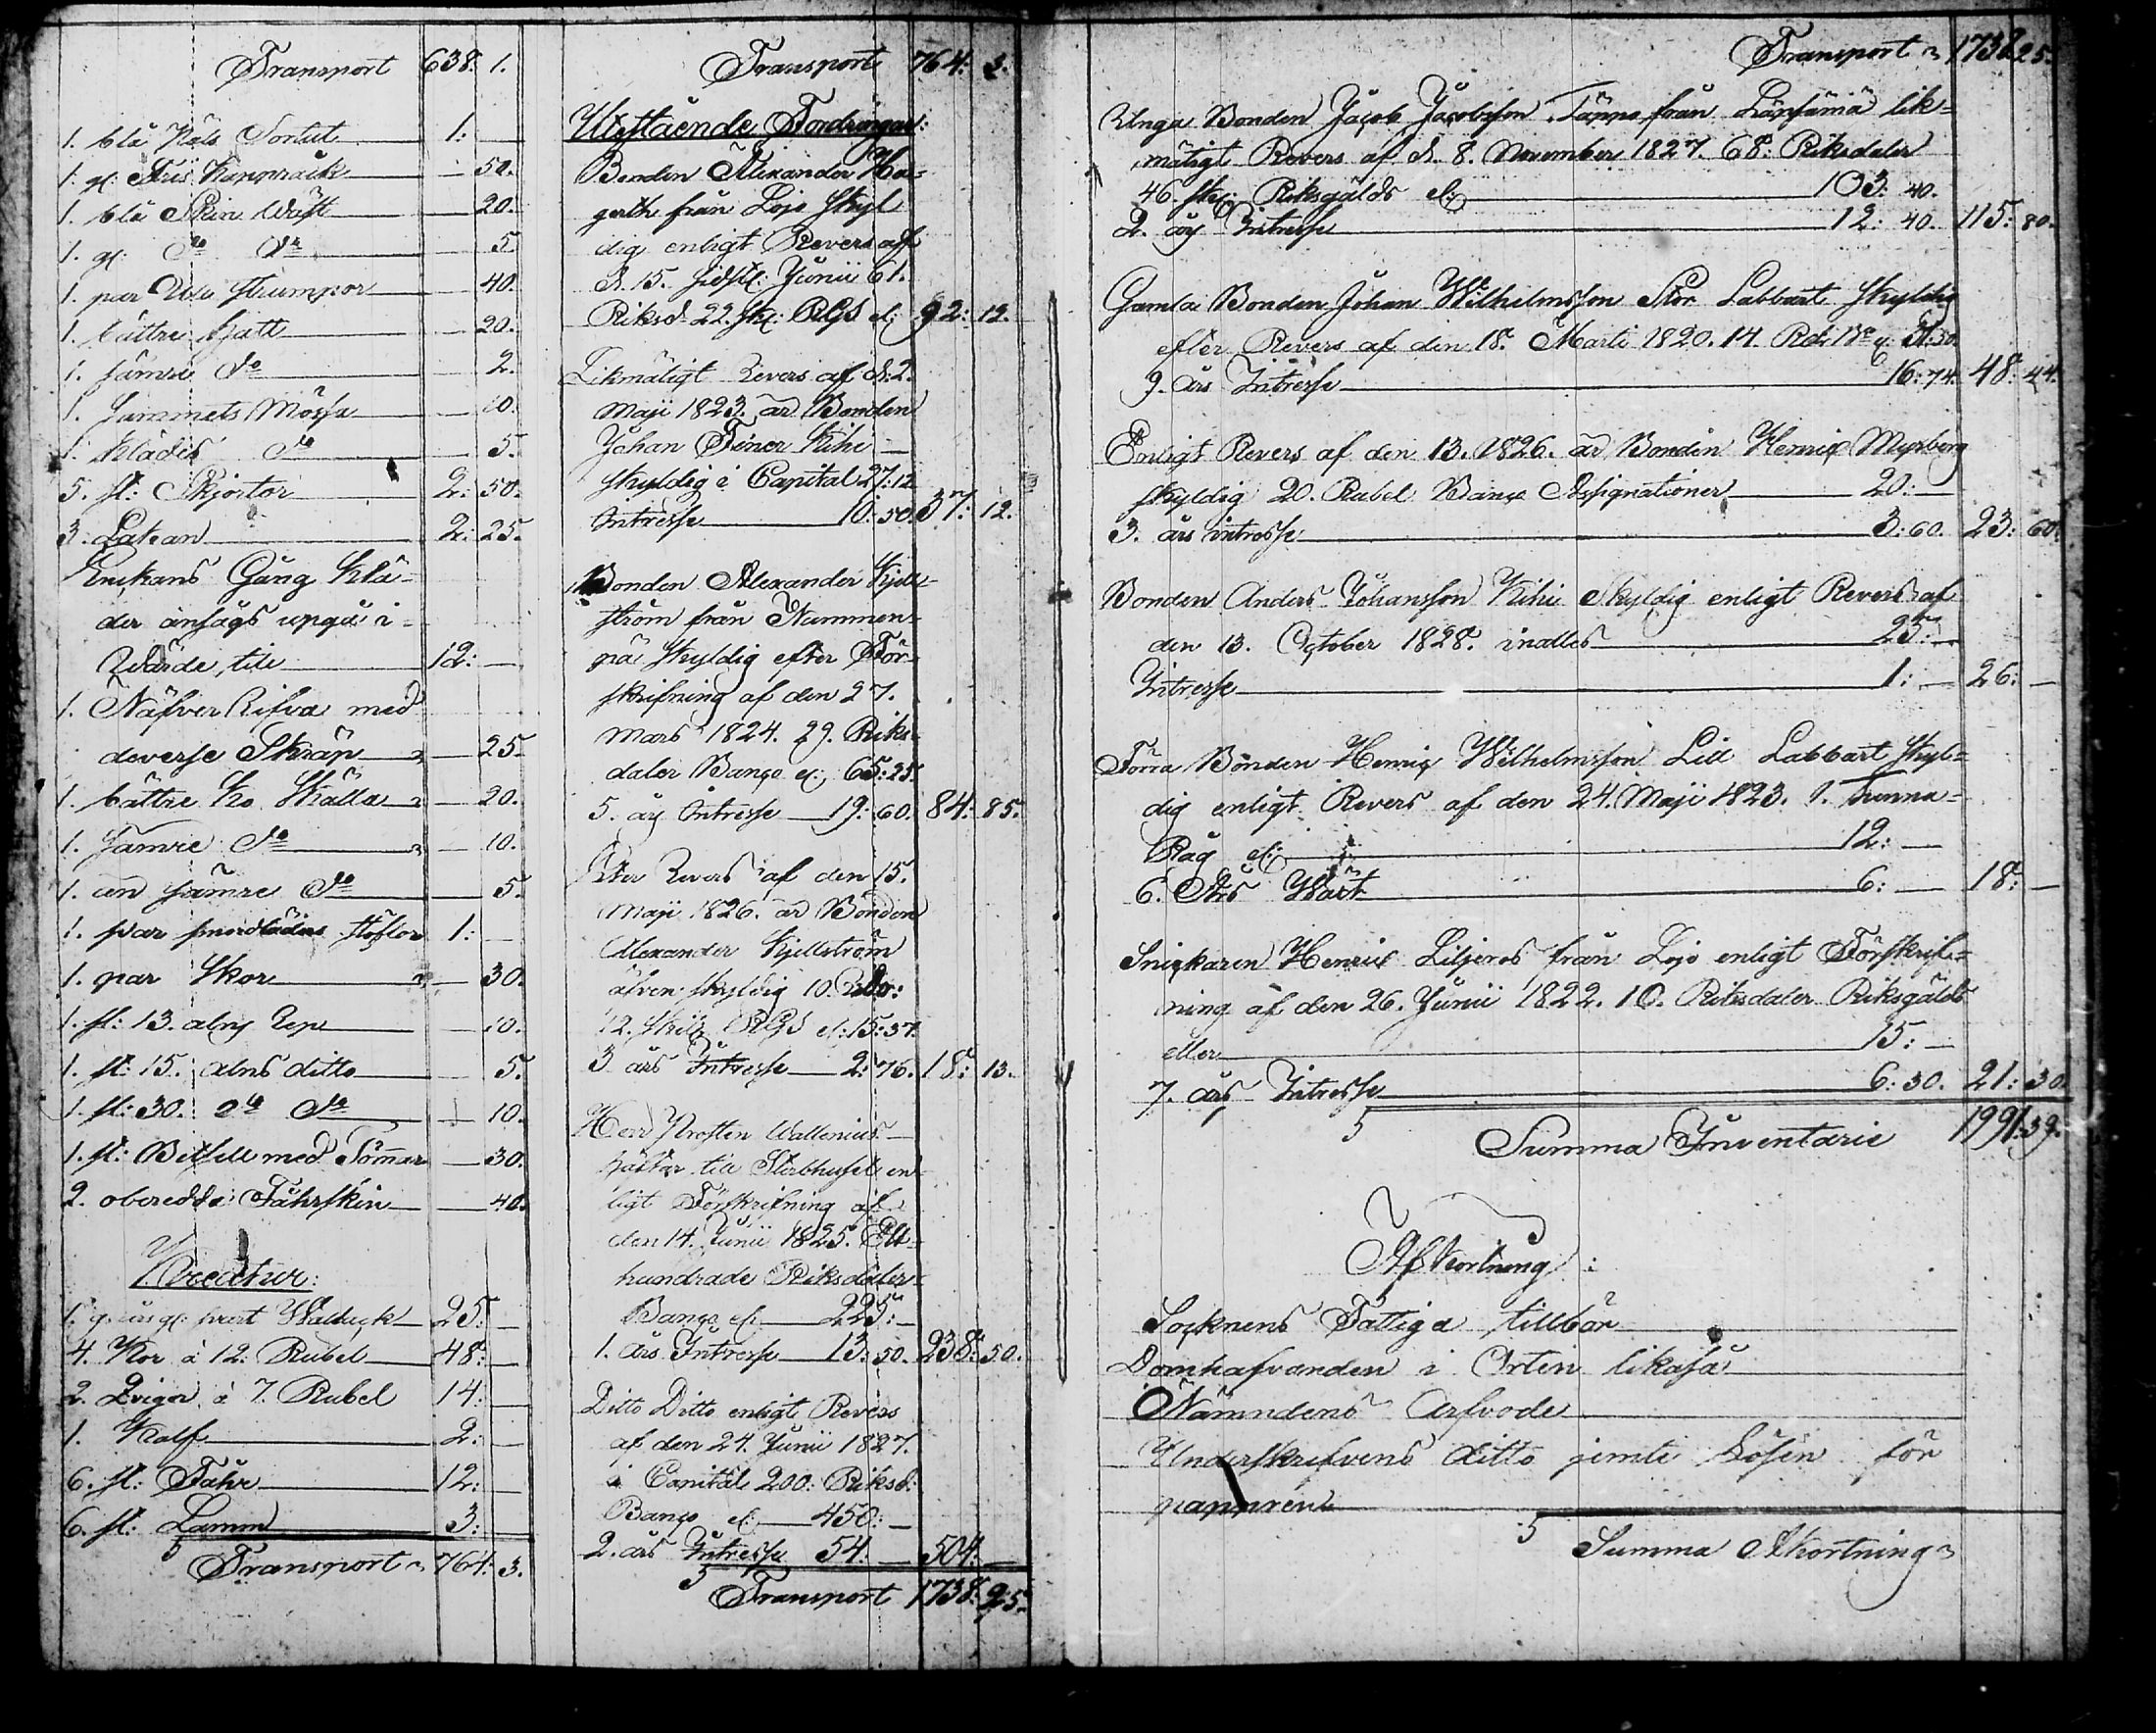 Transport 638. 1.
1. blå Kläs Sortut 1: —
1. gl: Kappråck — 50.
1. blå Skin Wäst — 20.
1. gl: Do Do — 5.
1. par Ulle strumpor — 40.
1. bättre hatt — 20.
1. sämre Do — 2.
1. Sammets Mössa — 10.
1. Klädes Do — 5.
5. st: Skjortor 2: 50.
3. Lakan 2: 25.
Enckans Gång Klä-
der ansågs upgå i
Wärde till 12: —
1. Näfver Rifva med
deverse Skräp — 25.
1. bättre Ko Skälla — 20.
1. Sämre Do — 10.
1. än sämre Do — 5.
1. par smordläders stöflor 1: —
1. par Skor — 30.
1. st: 13. alns Rep — 10.
1. st: 15. alns ditto — 5.
1. st: 30. Do Do — 10.
1. st: Betsell med Tömmar — 30.
2. oberedda Fåhrskin — 40.
Kreatur:
1. gl: svart Wallack 25: —
4. Kor à 12: Rubel 48: —
2. Qvigor à 7. Rubel 14: —
1. Kalf 2: —
6. st: Fåhr 12: —
6. st: Lamm 3: —
Transport 764: 3.
Transport 764: 3.
Utestående Fordringar:
Bonden Alexander Ha-
gerth från Lojo skyl
dig enligt Revers af
d. 15. sidstl: Junii 61.
Riksd. 22. sk: RGS el: 92: 12.
Likmätigt Revers af d. 2.
Maji 1823. är Bonden
Johan Kihi —
skyldig i Capital 27: 12
Intresse 10: 50. 37: 12.
Bonden Alexander Kjell-
ström från Nummen-
pä skyldig efter För-
skrifning af den 27.
Mars 1824. 29. Riks-
daler Banco el: 65: 25.
5. års Intresse 19: 60. 84: 85.
Efter Revers af den 15.
Maji 1826. är Bonden
Alexander Kjellström
äfven skyldig 10. Rdr:
12. skil RGS el: 15: 37.
3 års Intresse 2: 76. 18: 13.
Herr Prosten Wallenius
häftar till Sterbhuset en
ligt Förskrifning af
den 14. Junii 1825. Ett
hundrade Riksdaler
Banco el: 225: —
1. års Intresse 13: 50. 238: 50.
Ditto Ditto enligt Revers
af den 24. Junii 1827.
i Capital 200: Riksd:
Banco el: 450: —
2. års Intresse 54: — 504: —
Transport 1738: 25.
Transport 1738 25.
Unga Bonden Jacob Jacobsson från lik-
mätigt Revers af d. 8. November 1827. 68: Riksdaler
46. sk: Riksgälds el: 103: 40.
2. års Intresse 12: 40. 115: 80.
Gamla Bonden Johan Wilhelmsson Stor Labbart skyldig
efter Revers af den 18. Martii 1820. 14. Rdr Bco el: 31: 50.
9. års Intresse 16: 74. 48: 44.
Enligt Revers af den 13. 1826. är Bonden Henric Myrberg
skyldig 20. Rubel Banco Assignationer 20: —
3. års intresse 3: 60. 23: 60.
Bonden Anders Johansson Kihi skyldig enligt Revers af
den 13. October 1828. inalles 25: —
Intresse 1: — 26: —
Förra Bonden Henric Wilhelmsson Lill Labbart skyl-
dig enligt Revers af den 24. Maji 1823. 1. Tunna
Råg el: 12: —
6. Års Wäxt 6: — 18: —
Snickaren Henric Liljeros från Lojo enligt Förskrif-
ning af den 26. Junii 1822. 10. Riksdaler Riksgälds
eller 15: —
7. års Intresse 6: 30. 21: 30.
Summa Inventarie 1991: 39.
Afkortning:
Socknens Fattiga tillbör
Domhafvanden i Orten likaså
Nämndens Arfvode
Underskrifvens ditto jemte Lösen för
papperen
Summa Afkortning